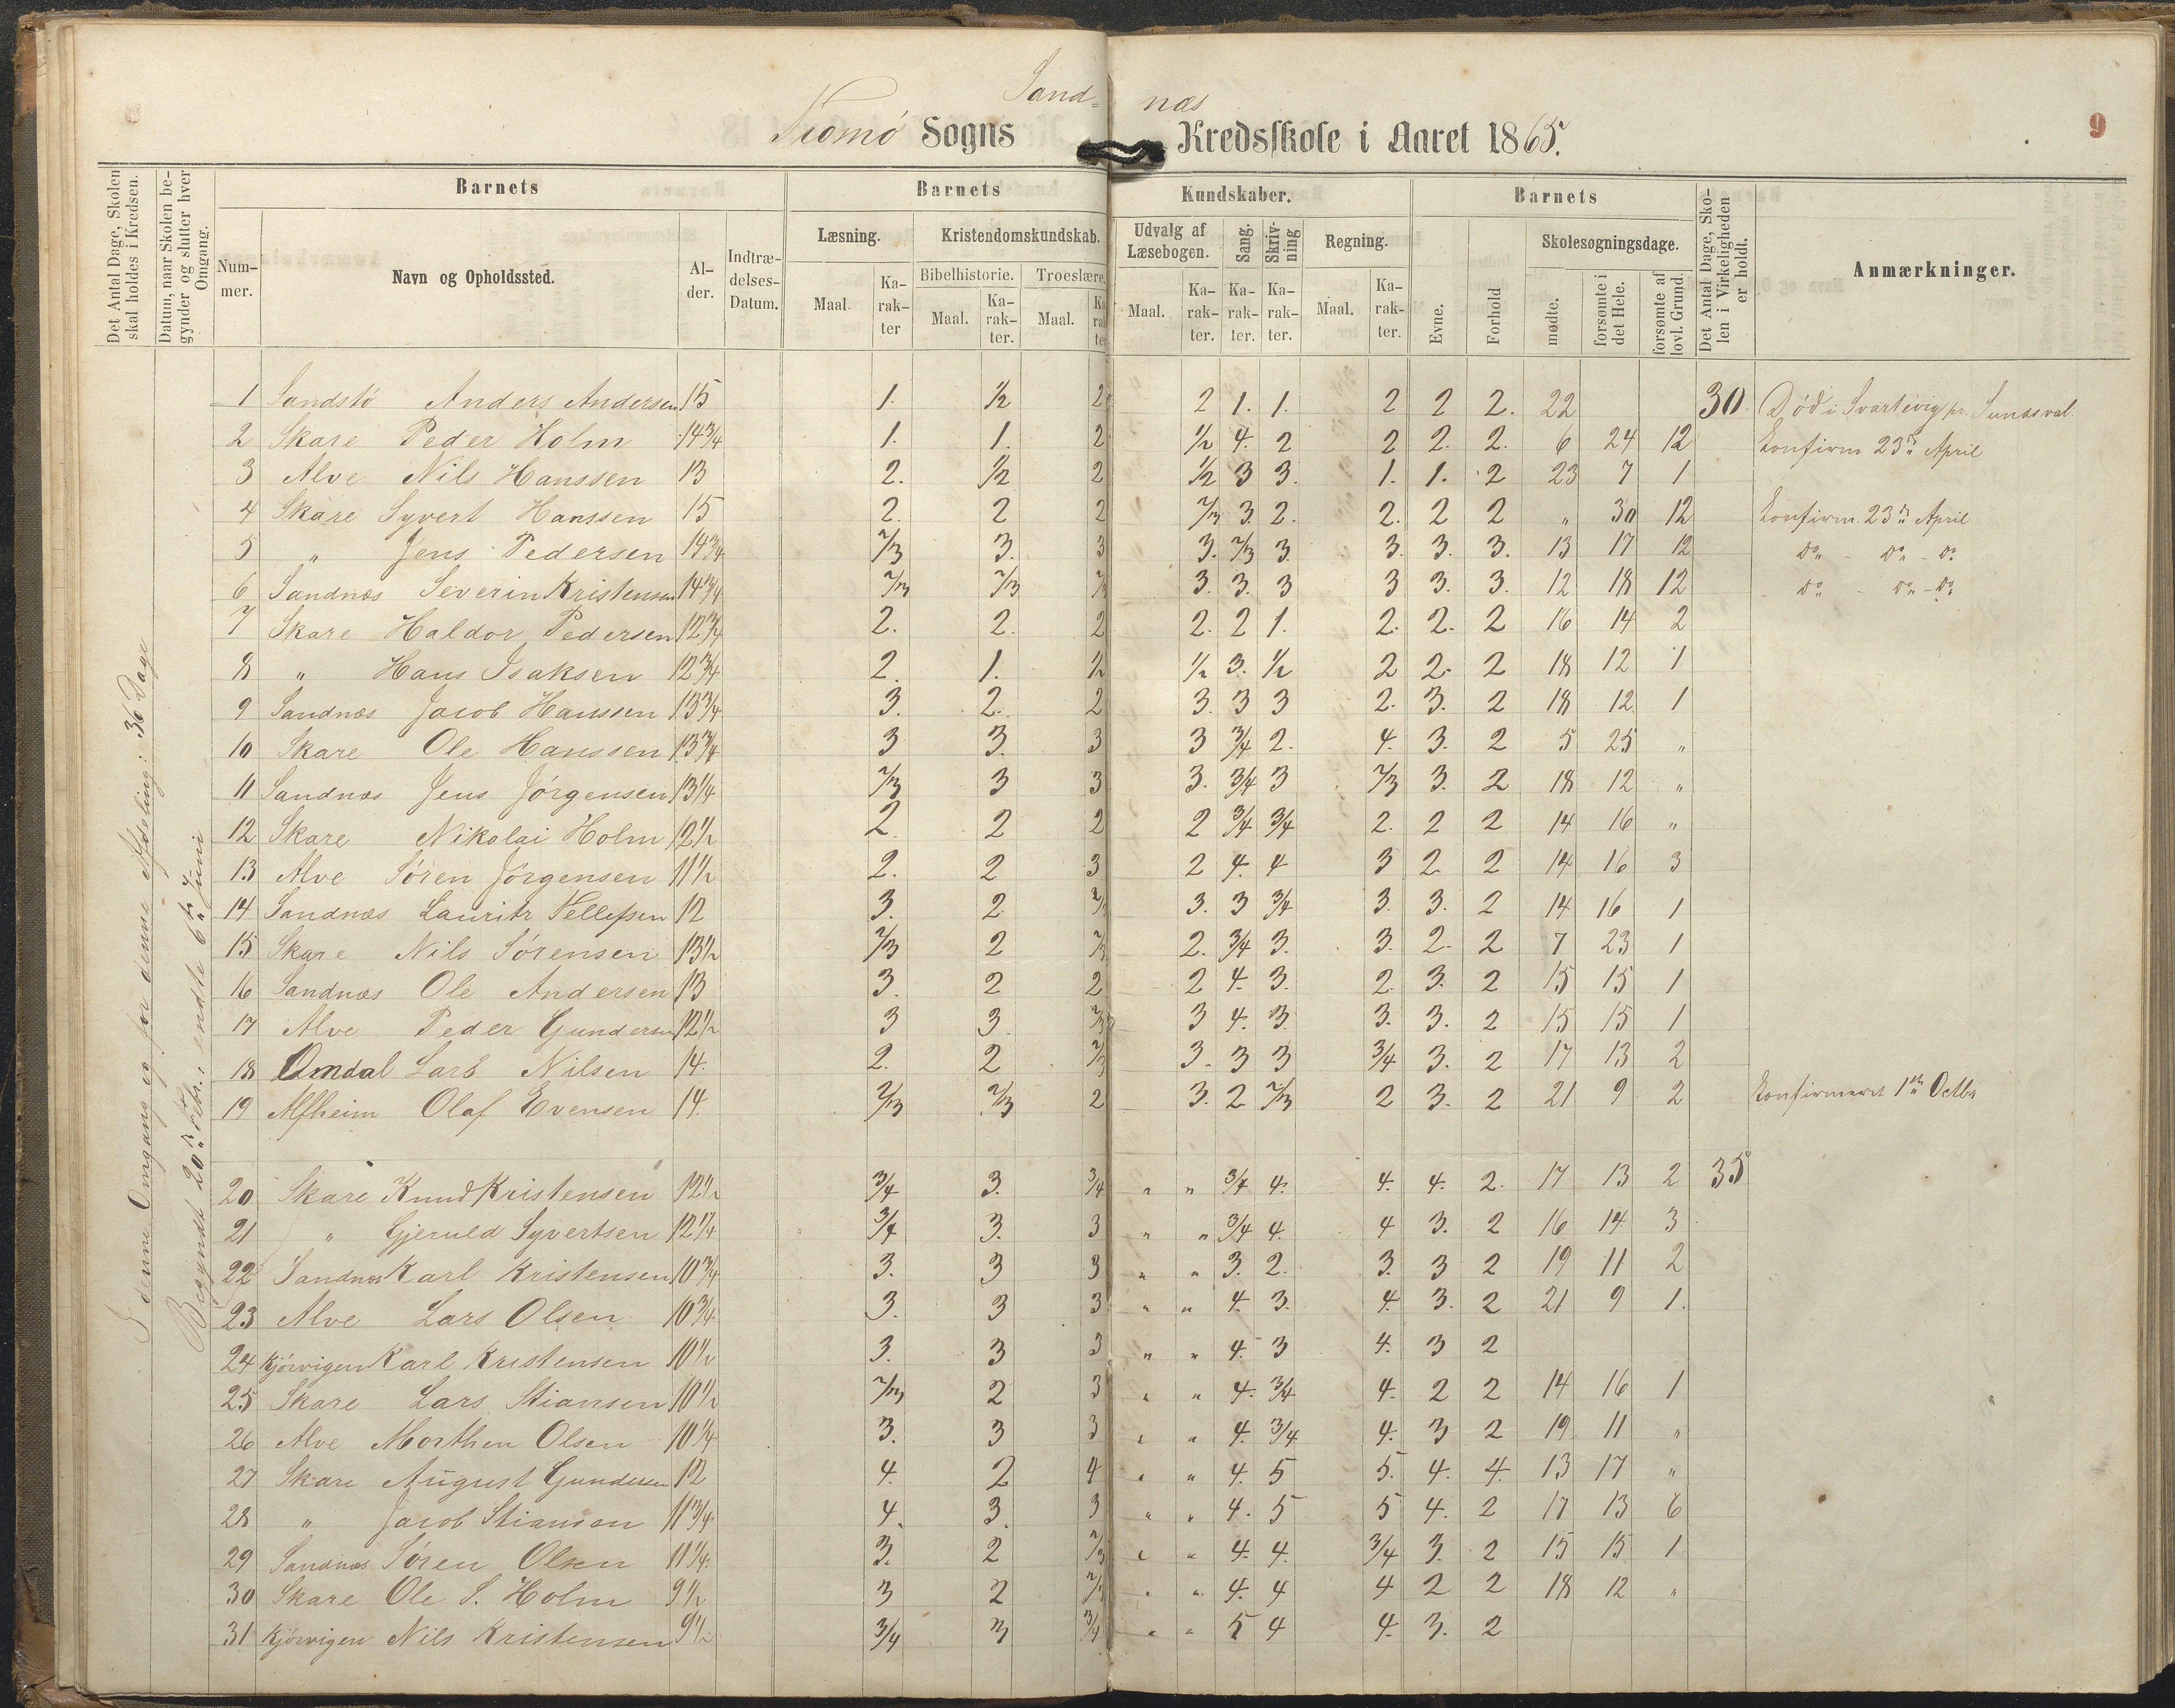 Sand= næs
Tromø Sogns Kredsskole i Aaret 1865.
9
Det Antal Dage, Skolen skal holdes i Kredsen.
Datum, naar Skolen begynder og slutter hver Omgang.
Barnets Barnets Kundskaber. Barnets
Det Antal Dage, Skolen i Virkeligheden er holdt.
Anmærkninger.
Nummer. Navn og Opholdssted. Alder. Indtrædelses-Datum.
Læsning. Kristendomskundskab. Udvalg af Læsebogen. Sang. Skrivning Regning. Evne. Forhold Skolesøgningsdage.
Bibelhistorie. Troeslære.
Maal. Karakter Maal. Karakter. Maal. Karakter Maal. Karakter. Karakter. Karakter. Maal. Karakter. mødte. forsømte i det Hele. forsømte af lovl. Grund.
I denne Omgang og for denne Afdeling: 36 Dage
Begyndt 20de Febr., endte 6te Juni
1 Sandstø Anders Andersen 15 1. 1/2 2 2 1. 1. 2 2 2. 22 30 Død i Svartevig pr. Sundsval.
2 Skare Peder Holm 14 3/4 1. 1. 2 1/2 4. 2 2 2. 2. 6 24 12 Konfirm 23de April
3 Alve Nils Hanssen 13 2. 1/2 2 1/2 3 3. 1. 1. 2 23 7 1
4 Skare Syvert Hanssen 15 2. 2 2 2/3 3. 2. 2. 2 2 " 30 12 Konfirm. 23de April
5 " Jens Pedersen 14 3/4 2/3 3. 3 3. 2/3 3. 3. 3. 3. 13 17 12 Do - Do - Do
6 Sandnæs Severin Kristensen 14 3/4 2/3 2/3 2/3 3. 3. 3 3 3. 3. 12 18 12 Do - Do - Do
7 Skare Haldor Pedersen 12 3/4 2. 2. 2 2. 2 1. 2. 2. 2 16 14 2
8 " Hans Isaksen 12 3/4 2. 1. 1/2 1/2 3. 1/2 2 2. 2 18 12 1
9 Sandnæs Jacob Hanssen 13 3/4 3. 2. 2 3. 3 3 2. 3. 2 18 12 1
10 Skare Ole Hanssen 13 3/4 3 3. 3 3 3/4 2. 4. 3. 2 5 25 "
11 Sandnæs Jens Jörgensen 13 1/4 2/3 3 3 3. 3/4 3 2/3 3. 2 18 12 "
12 Skare Nikolai Holm 12 1/2 2. 2 2 2 3/4 3/4 2. 2 2 14 16 "
13 Alve Søren Jörgensen 11 1/2 2. 2 3 2 4. 4 3 2 2 14 16 3
14 Sandnæs Lauritz Tellefsen 12 3. 2 2/3 3. 3 3/4 3. 3. 2 14 16 1
15 Skare Nils Sørensen 13 1/2 2/3 2 2/3 2. 3/4 3. 3. 2. 2 7 23 1
16 Sandnæs Ole Andersen 13 3. 2 2 2 4. 3. 2. 3. 2 15 15 1
17 Alve Peder Gundersen 12 1/2 3 3. 2/3 3 4. 3. 3. 3. 2 15 15 1
18 Omdal Lars Nilsen 14. 2. 2 2/3 3. 3 3 3/4 3. 2 17 13 2
19 Alfheim Olaf Evensen 14. 2/3 2/3 2 3. 2 2/3 2 3. 2 21 9 2 Konfirmeret 1ste Octbr
20 Skare Knud Kristensen 12 1/2 3/4 3. 3/4 " " 3/4 4. 4. 4. 2. 17 13 2 35
21 " Gjeruld Syvertsen 12 1/4 3/4 3. 3 " " 3/4 4. 4 3. 2 16 14 3
22 Sandnæs Karl Kristensen 10 3/4 3. 3 3 " " 3. 2. 3. 3 2 19 11 2
23 Alve Lars Olsen 10 3/4 3. 3 3 " " 4. 3. 4. 3. 2 21 9 1.
24 Kjørvigen Karl Kristensen 10 1/2 3. 3 3 " " 4. 3 4. 3 2
25 Skare Lars Stiansen 10 1/2 2/3 2 3 " " 4. 3/4 4. 2 2 14 16 1
26 Alve Morthen Olsen 10 1/4 3. 3 3 " " 4. 3/4 4. 3 2 19 11 "
27 Skare August Gundersen 12 4. 2 4 " " 4. 5 5. 4. 4. 13 17 "
28 " Jacob Stiansen 11 3/4 4. 3. 3 " " 4. 5 5 4. 2 17 13 6
29 Sandnæs Søren Olsen 11 1/4 3. 2 2/3 " " 4. 4. 3/4 3. 2 15 15 1
30 Skare Ole S. Holm 9 1/2 3 2 2/3 " " 4. 4 4 2 2 18 12 "
31 Kjørvigen Nils Kristensen 9 1/2 3/4 3 3/4 " " 5 4 4. 3. 2